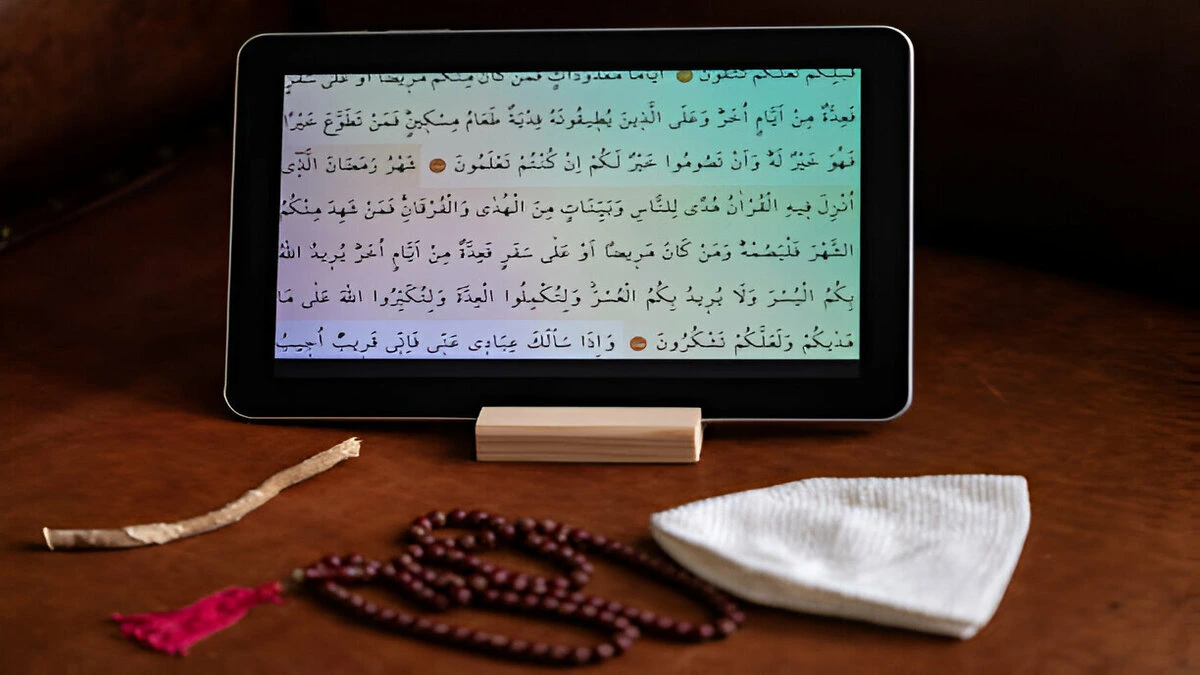 قَبْلِكُمْ لَعَلَّكُمْ تَتَّقُونَ اَيَّامًا مَعْدُودَاتٍ فَمَنْ كَانَ مِنْكُمْ مَرِيضًا اَوْ عَلٰى سَفَرٍ
فَعِدَّةٌ مِنْ اَيَّامٍ اُخَرَ وَعَلَى الَّذِينَ يُطِيقُونَهُ فِدْيَةٌ طَعَامُ مِسْكِينٍ فَمَنْ تَطَوَّعَ خَيْرًا
فَهُوَ خَيْرٌ لَهُ وَاَنْ تَصُومُوا خَيْرٌ لَكُمْ اِنْ كُنْتُمْ تَعْلَمُونَ شَهْرُ رَمَضَانَ الَّذِٓى
اُنْزِلَ فِيهِ الْقُرْاٰنُ هُدًى لِلنَّاسِ وَبَيِّنَاتٍ مِنَ الْهُدٰى وَالْفُرْقَانِ فَمَنْ شَهِدَ مِنْكُمُ
الشَّهْرَ فَلْيَصُمْهُ وَمَنْ كَانَ مَرِيضًا اَوْ عَلٰى سَفَرٍ فَعِدَّةٌ مِنْ اَيَّامٍ اُخَرَ يُرِيدُ اللّٰهُ
بِكُمُ الْيُسْرَ وَلَا يُرِيدُ بِكُمُ الْعُسْرَ وَلِتُكْمِلُوا الْعِدَّةَ وَلِتُكَبِّرُوا اللّٰهَ عَلٰى مَا
هَدٰيكُمْ وَلَعَلَّكُمْ تَشْكُرُونَ وَاِذَا سَاَلَكَ عِبَادِى عَنِّى فَاِنِّى قَرِيبٌ اُجِيبُ